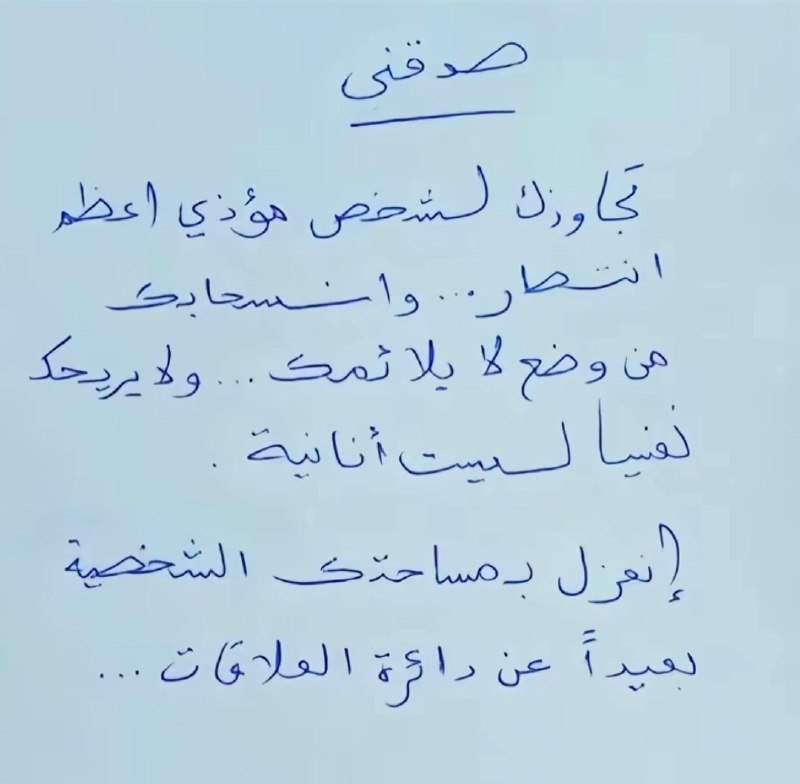 صدقني
تجاوزك لشخص مؤذي اعظم
انتصار... وانسحابك
من وضع لا يلائمك... ولا يريحك
نفسياً ليست أنانية .
إنعزل بمساحتك الشخصية
بعيداً عن دائرة العلاقات ...